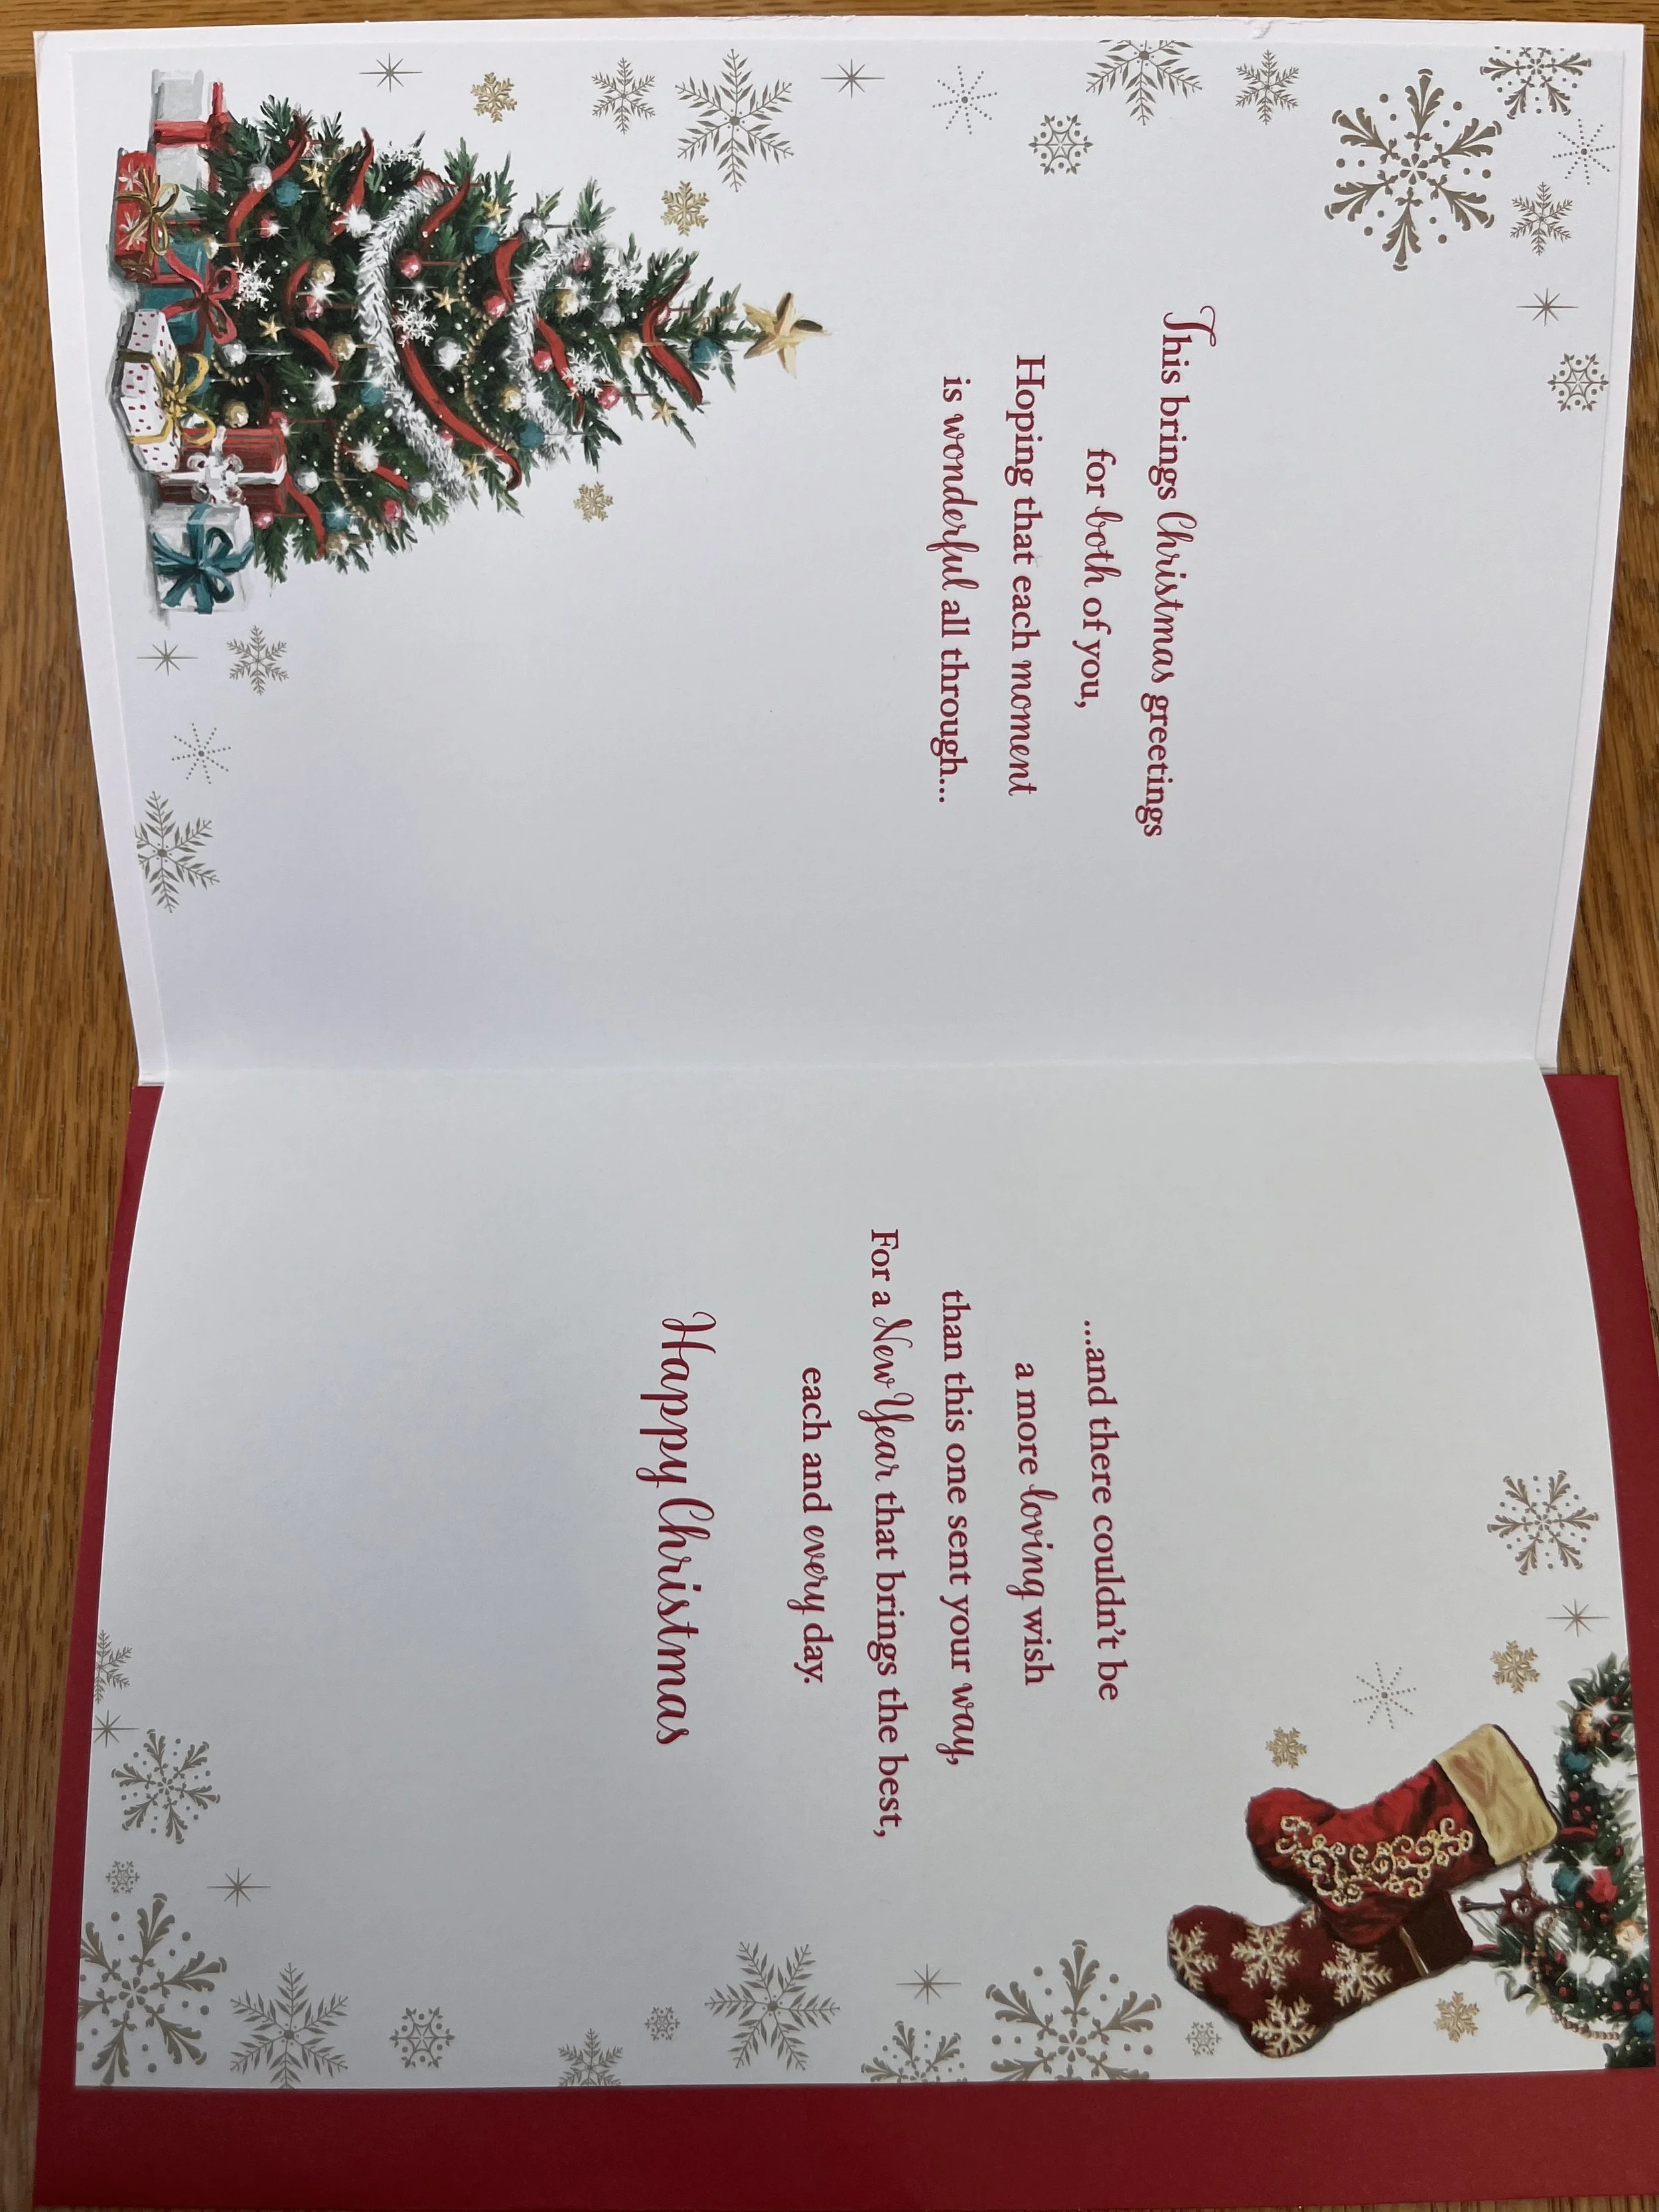 This brings Christmas greetings
for both of you,
Hoping that each moment
is wonderful all through...
...and there couldn't be
a more loving wish
than this one sent your way,
For a New Year that brings the best,
each and every day.
Happy Christmas